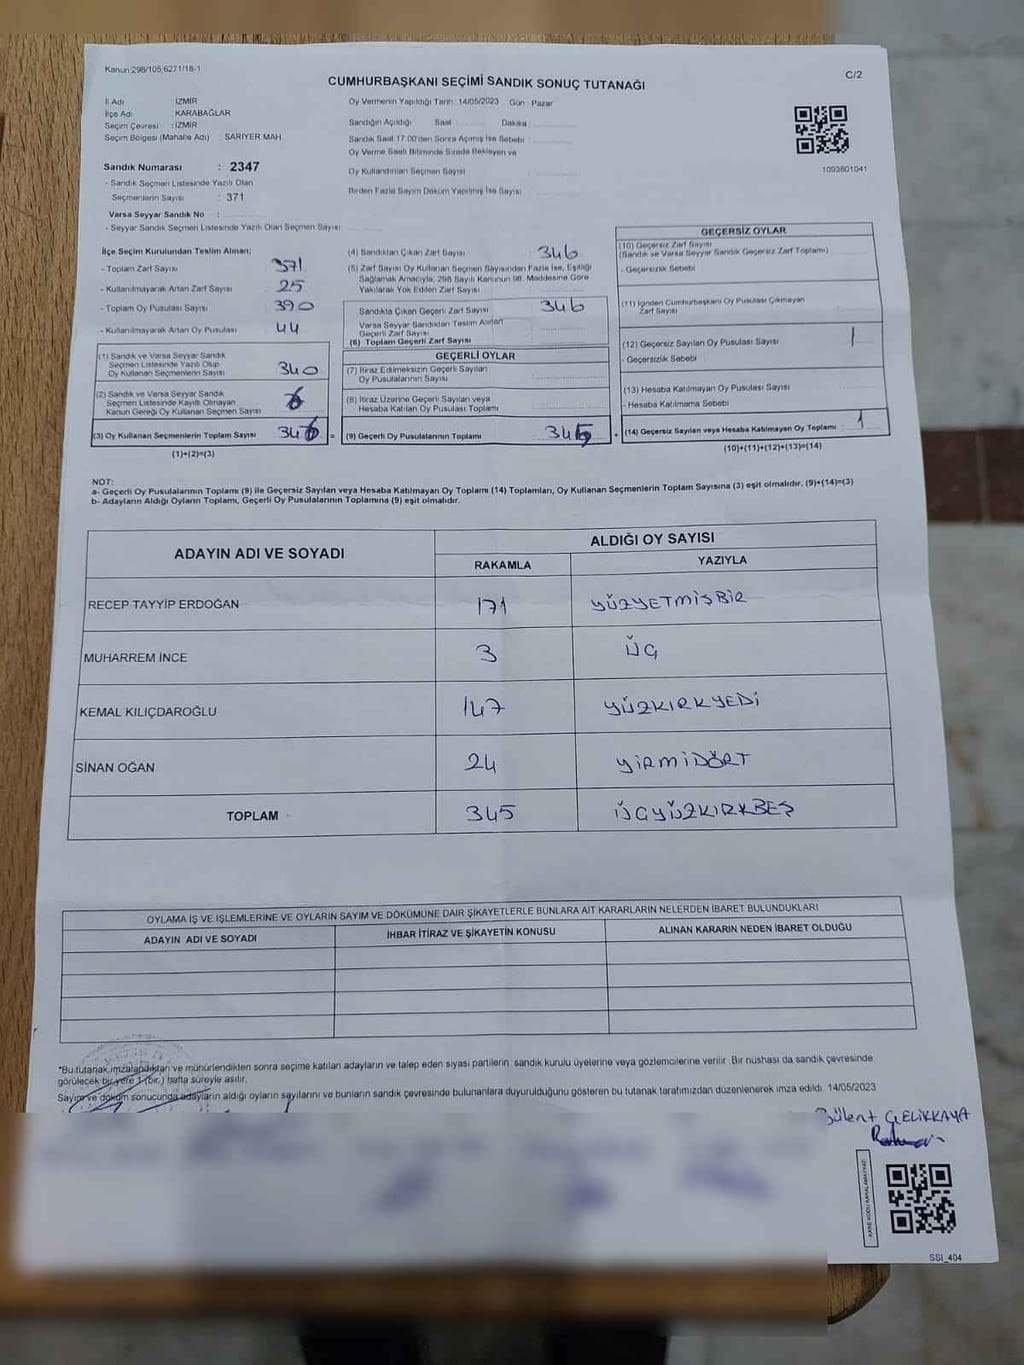 Kanun:298/105;6271/18-1
CUMHURBAŞKANI SEÇİMİ SANDIK SONUÇ TUTANAĞI
C/2
İl Adı : İZMİR
İlçe Adı : KARABAĞLAR
Seçim Çevresi : İZMİR
Seçim Bölgesi (Mahalle Adı) : SARIYER MAH.
Oy Vermenin Yapıldığı Tarih: 14/05/2023 Gün : Pazar
Sandığın Açıldığı Saat Dakika
Sandık Saat 17.00'den Sonra Açılmış İse Sebebi :
Oy Verme Saati Bitiminde Sırada Bekleyen ve
Oy Kullandırılan Seçmen Sayısı
Birden Fazla Sayım Döküm Yapılmış İse Sayısı
1093801041
Sandık Numarası : 2347
- Sandık Seçmen Listesinde Yazılı Olan
Seçmenlerin Sayısı : 371
Varsa Seyyar Sandık No :
- Seyyar Sandık Seçmen Listesinde Yazılı Olan Seçmen Sayısı
İlçe Seçim Kurulundan Teslim Alınan;
- Toplam Zarf Sayısı 371
- Kullanılmayarak Artan Zarf Sayısı 25
- Toplam Oy Pusulası Sayısı 390
- Kullanılmayarak Artan Oy Pusulası 44
(1) Sandık ve Varsa Seyyar Sandık
Seçmen Listesinde Yazılı Olup
Oy Kullanan Seçmenlerin Sayısı 340
(2) Sandık ve Varsa Seyyar Sandık
Seçmen Listesinde Kayıtlı Olmayan
Kanun Gereği Oy Kullanan Seçmen Sayısı 6
(3) Oy Kullanan Seçmenlerin Toplam Sayısı 346 =
(1)+(2)=(3)
(4) Sandıktan Çıkan Zarf Sayısı 346
(5) Zarf Sayısı Oy Kullanan Seçmen Sayısından Fazla İse, Eşitliği
Sağlamak Amacıyla, 298 Sayılı Kanunun 98. Maddesine Göre
Yakılarak Yok Edilen Zarf Sayısı
Sandıkta Çıkan Geçerli Zarf Sayısı 346
Varsa Seyyar Sandıktan Teslim Alınan
Geçerli Zarf Sayısı
(6) Toplam Geçerli Zarf Sayısı
GEÇERLİ OYLAR
(7) İtiraz Edilmeksizin Geçerli Sayılan
Oy Pusulalarının Sayısı
(8) İtiraz Üzerine Geçerli Sayılan veya
Hesaba Katılan Oy Pusulası Toplamı
(9) Geçerli Oy Pusulalarının Toplamı 345 +
GEÇERSİZ OYLAR
(10) Geçersiz Zarf Sayısı
(Sandık ve Varsa Seyyar Sandık Geçersiz Zarf Toplamı)
- Geçersizlik Sebebi
(11) İçinden Cumhurbaşkanı Oy Pusulası Çıkmayan
Zarf Sayısı
(12) Geçersiz Sayılan Oy Pusulası Sayısı 1
- Geçersizlik Sebebi
(13) Hesaba Katılmayan Oy Pusulası Sayısı
- Hesaba Katılmama Sebebi
(14) Geçersiz Sayılan veya Hesaba Katılmayan Oy Toplamı : 1
(10)+(11)+(12)+(13)=(14)
NOT:
a- Geçerli Oy Pusulalarının Toplamı (9) ile Geçersiz Sayılan veya Hesaba Katılmayan Oy Toplamı (14) Toplamları, Oy Kullanan Seçmenlerin Toplam Sayısına (3) eşit olmalıdır. (9)+(14)=(3)
b- Adayların Aldığı Oyların Toplamı, Geçerli Oy Pusulalarının Toplamına (9) eşit olmalıdır.
ADAYIN ADI VE SOYADI
ALDIĞI OY SAYISI
RAKAMLA YAZIYLA
RECEP TAYYİP ERDOĞAN 171 YÜZYETMİŞBİR
MUHARREM İNCE 3 ÜÇ
KEMAL KILIÇDAROĞLU 147 YÜZKIRKYEDİ
SİNAN OĞAN 24 YİRMİDÖRT
TOPLAM 345 ÜÇYÜZKIRKBEŞ
OYLAMA İŞ VE İŞLEMLERİNE VE OYLARIN SAYIM VE DÖKÜMÜNE DAİR ŞİKAYETLERLE BUNLARA AİT KARARLARIN NELERDEN İBARET BULUNDUKLARI
ADAYIN ADI VE SOYADI İHBAR İTİRAZ VE ŞİKAYETİN KONUSU ALINAN KARARIN NEDEN İBARET OLDUĞU
*Bu tutanak imzalandıktan ve mühürlendikten sonra seçime katılan adayların ve talep eden siyasi partilerin sandık kurulu üyelerine veya gözlemcilerine verilir. Bir nüshası da sandık çevresinde
görülecek bir yere 1 (bir) hafta süreyle asılır.
Sayım ve döküm sonucunda adayların aldığı oyların sayılarını ve bunların sandık çevresinde bulunanlara duyurulduğunu gösteren bu tutanak tarafımızdan düzenlenerek imza edildi. 14/05/2023
Bülent ÇELİKKAYA
KARE KODU KARALAMAYINIZ
SSI_404